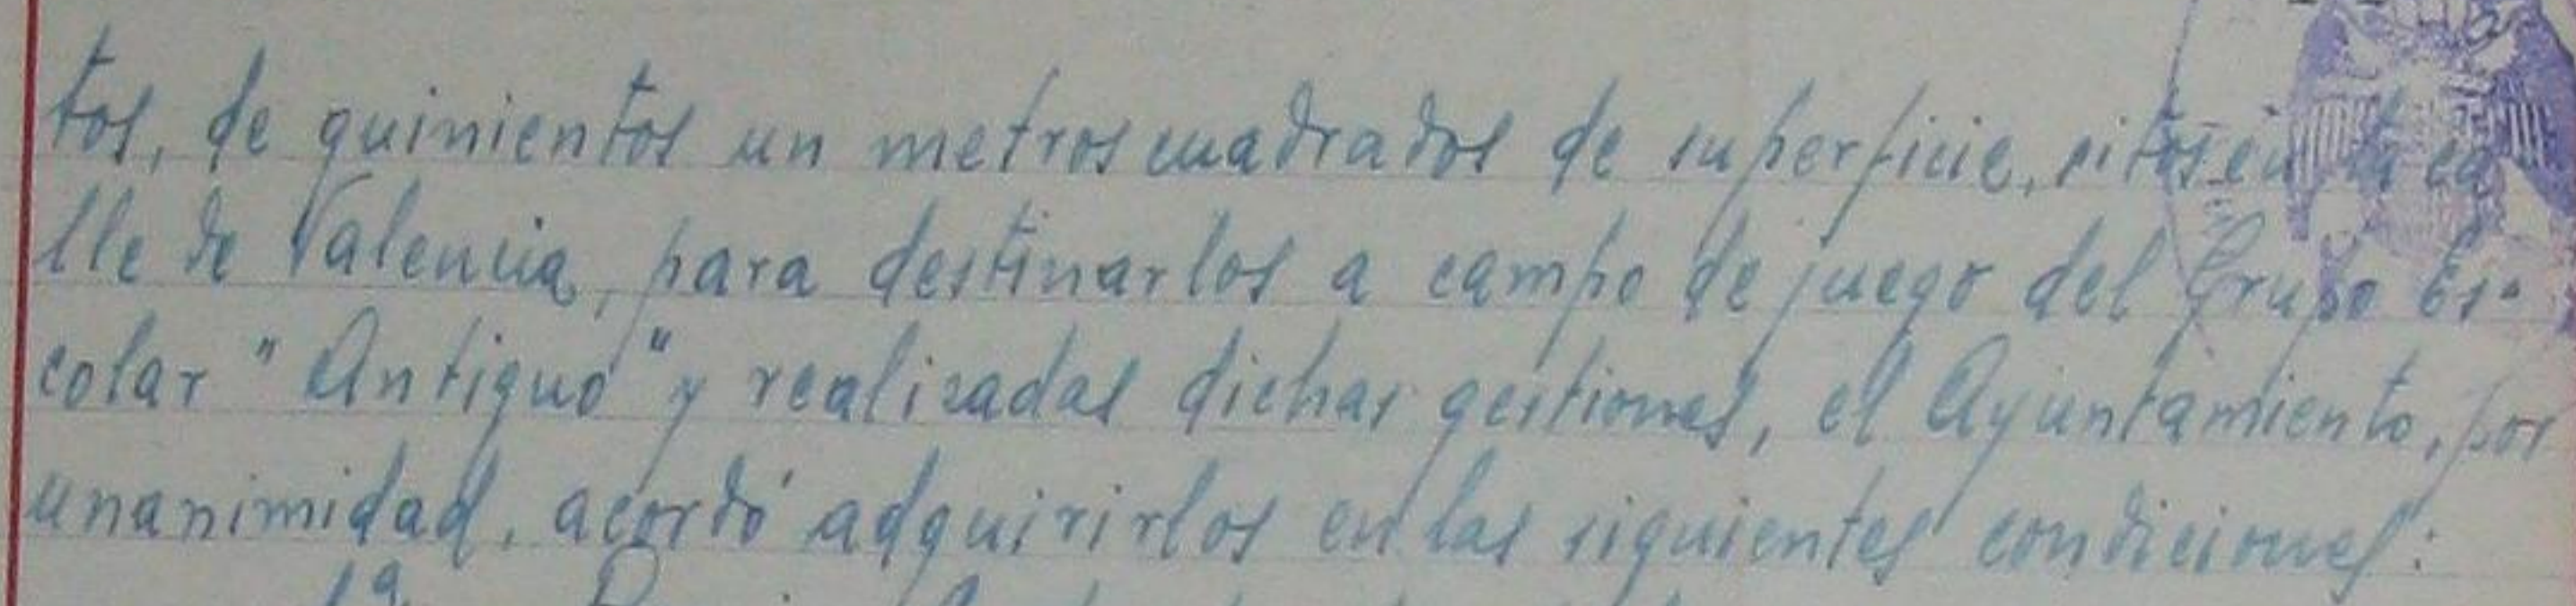 tos, de quinientos un metros cuadrados de superficie, sitos en la ca
lle de Valencia, para destinarlos a campo de juego del Grupo Es-
colar "Antiguo" y realizadas dichas gestiones, el Ayuntamiento, por
unanimidad, acordó adquirirlos en las siguientes condiciones:
1ª